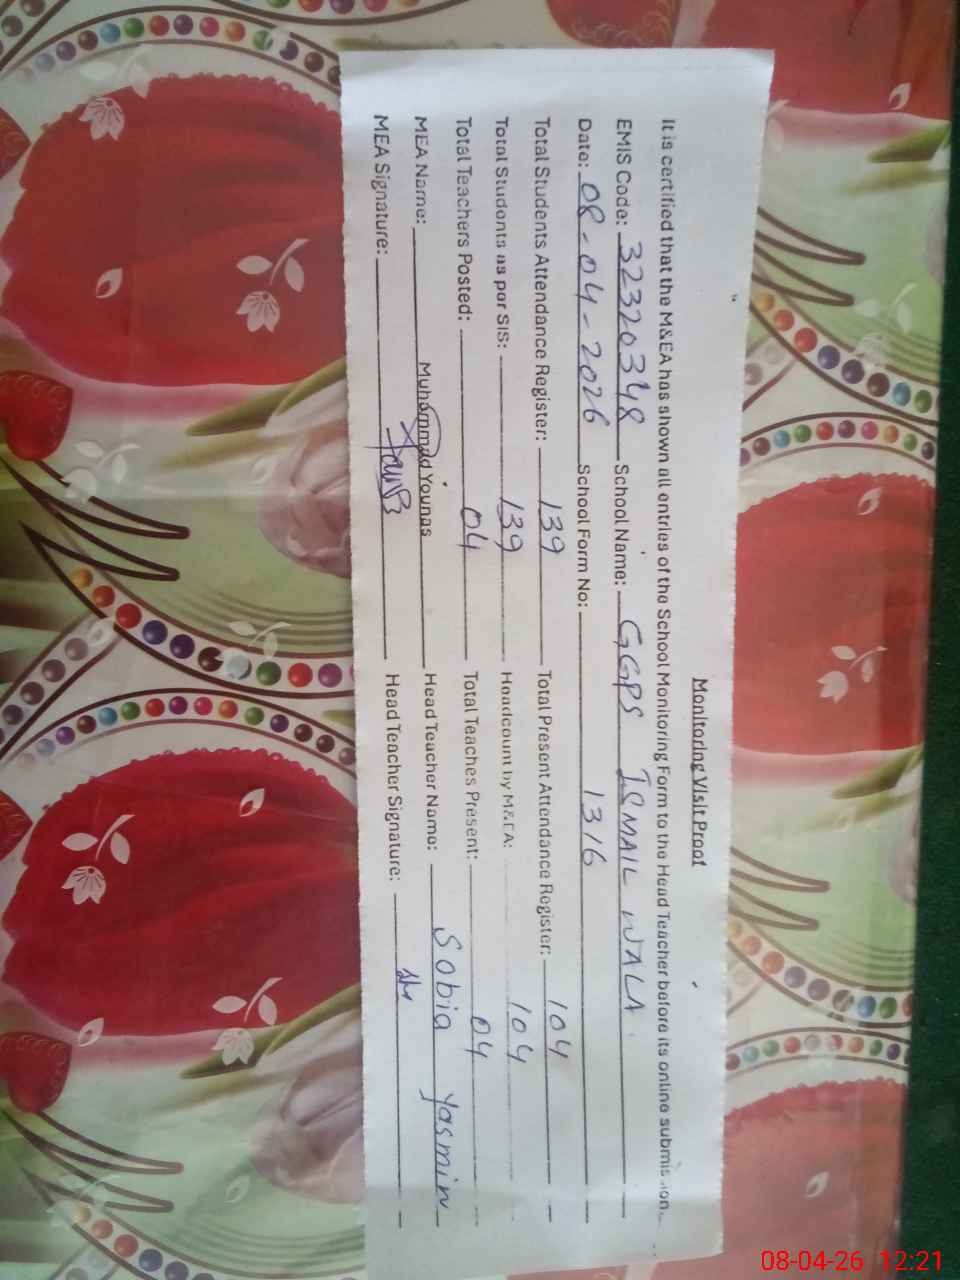 Monitoring Visit Proof
It is certified that the M&EA has shown all entries of the School Monitoring Form to the Head Teacher before its online submission.
EMIS Code: 32320348 School Name: GGPS ISMAIL WALA
Date: 08-04-2026 School Form No: 1316
Total Students Attendance Register: 139 Total Present Attendance Register: 104
Total Students as per SIS: 139 Headcount by M&EA: 104
Total Teachers Posted: 04 Total Teaches Present: 04
MEA Name: Muhammad Younas Head Teacher Name: Sobia Yasmin
MEA Signature: Head Teacher Signature:
08-04-26 12:21